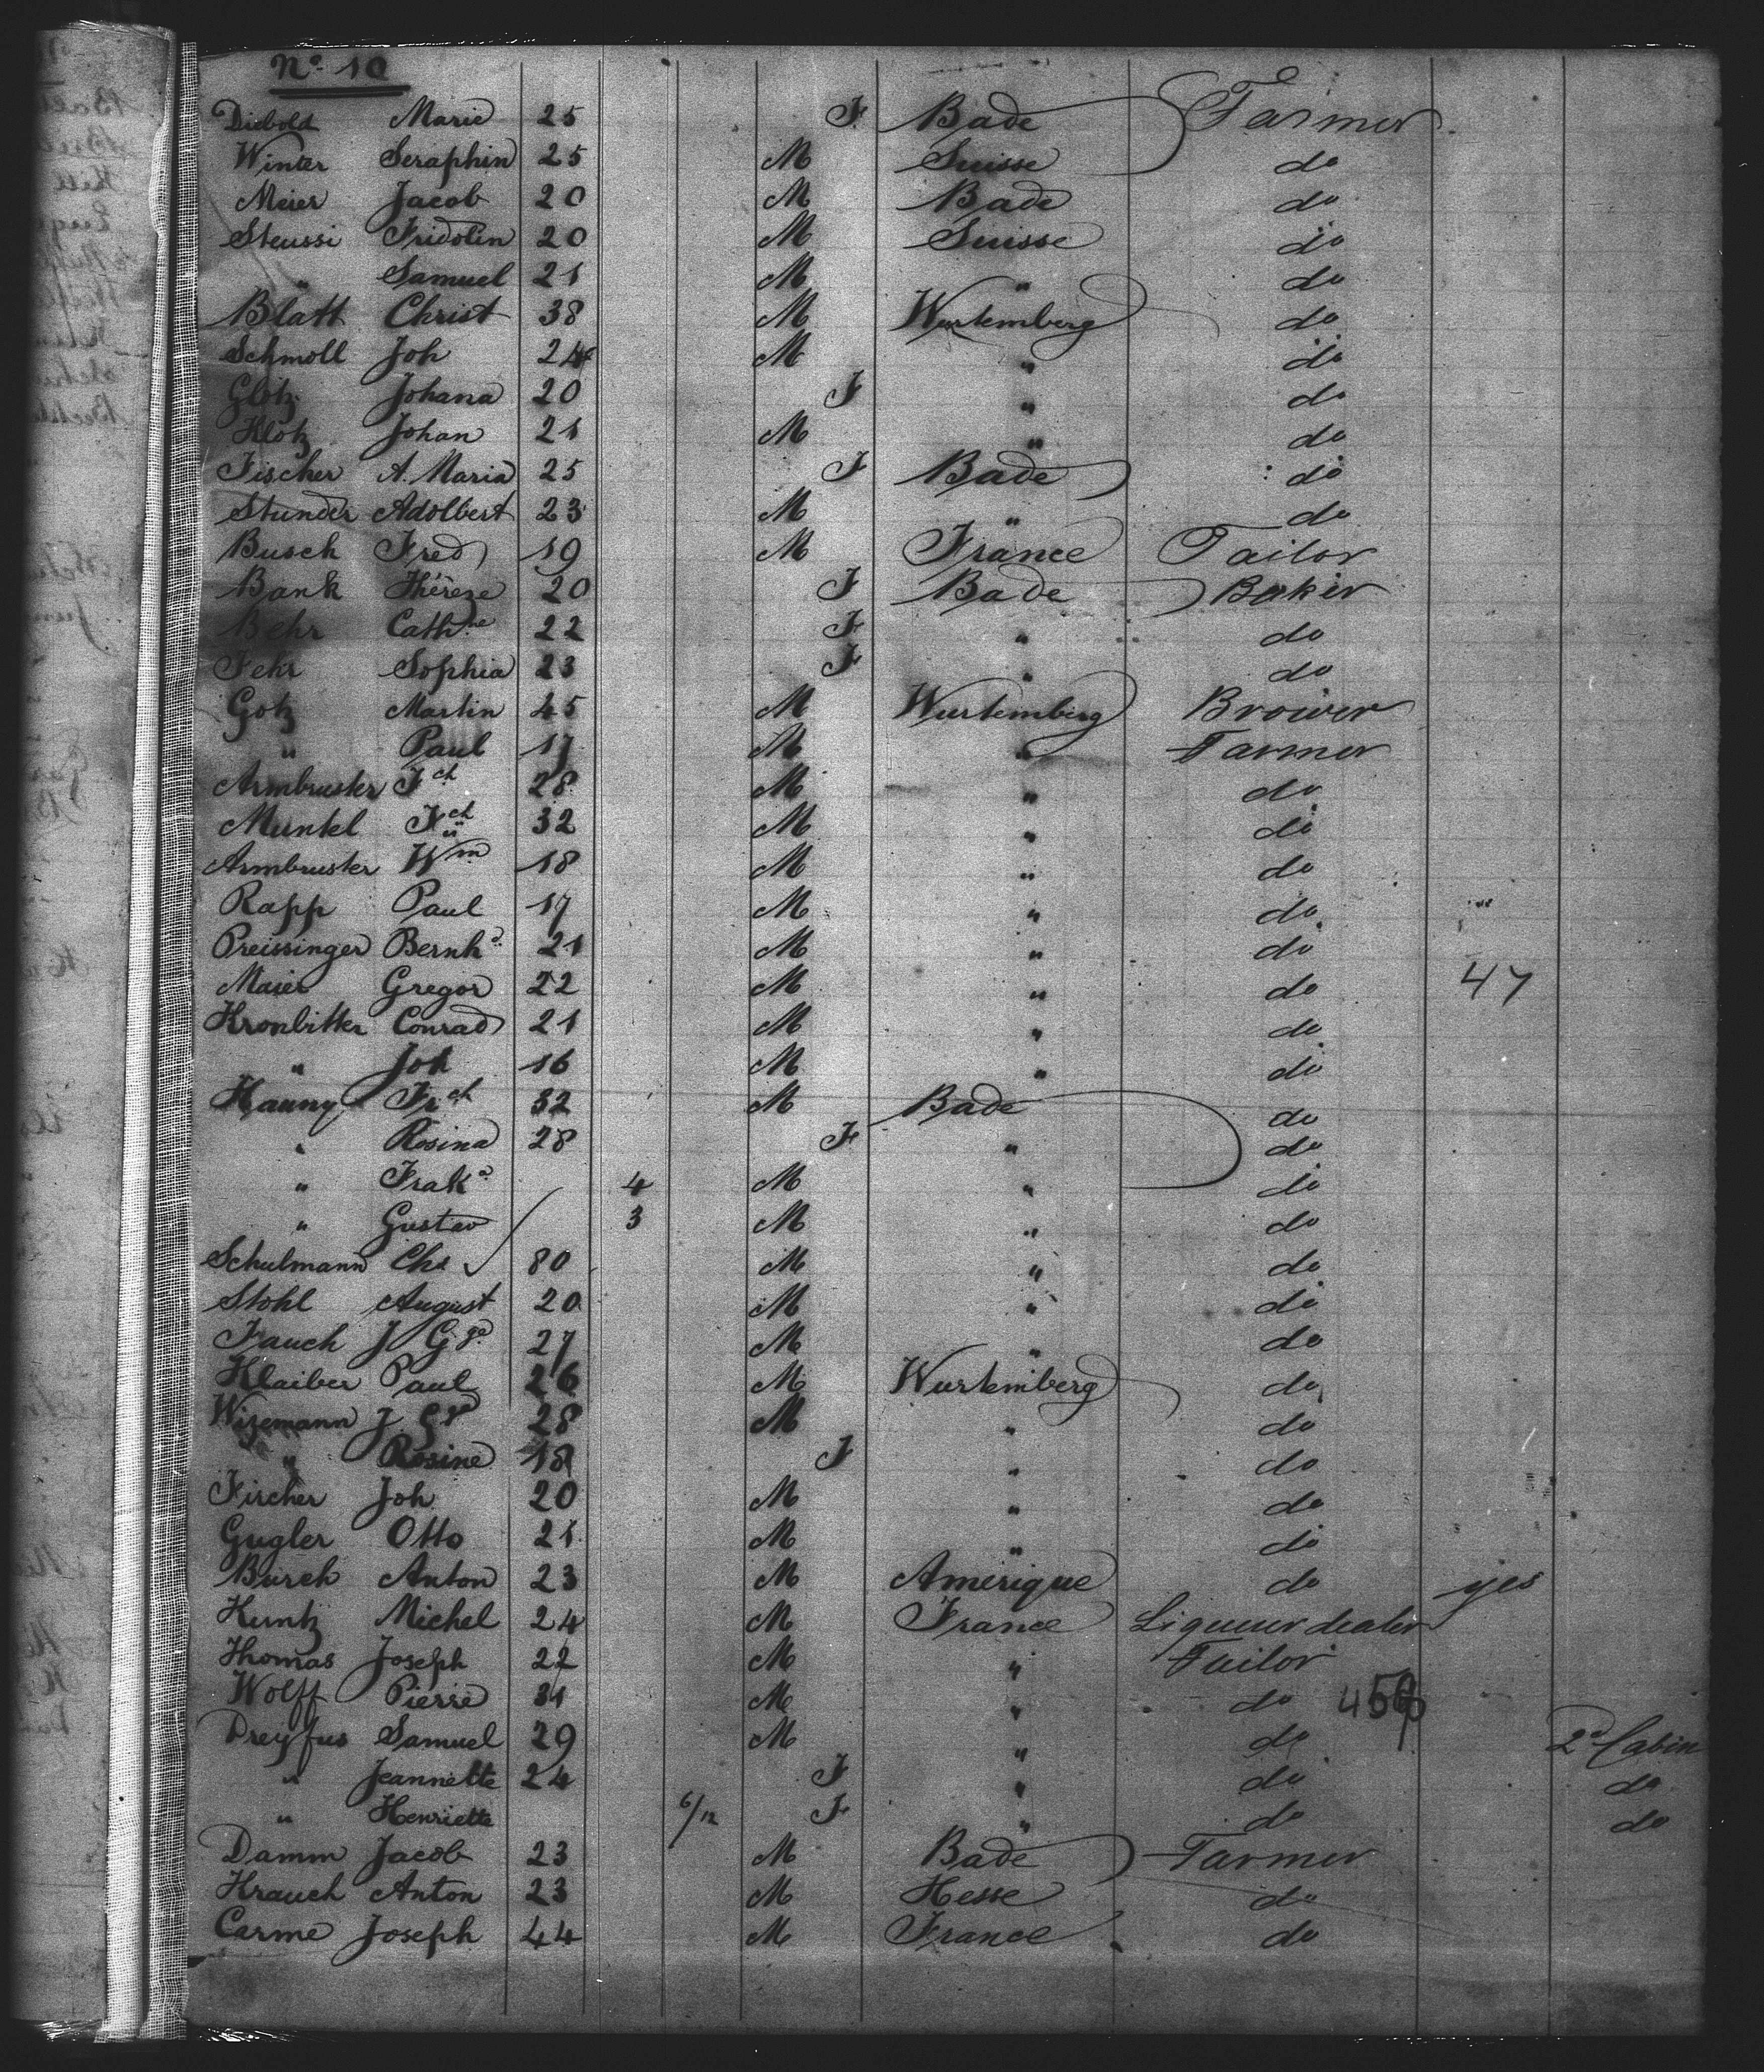 No. 10
Diebold Marie 25 F Bade Farmer
Winter Seraphin 25 M Suisse do
Meier Jacob 20 M Bade do
Steussi Fridolin 20 M Suisse do
" Samuel 21 M " do
Blatt Christ 38 M Wurtemberg do
Schmoll Joh 24 M " do
Glotz Johana 20 F " do
Klotz Johan 21 M " do
Fischer A. Maria 25 F Bade do
Stunder Adolbert 23 M " do
Busch Fred 19 M France Tailor
Bank Thérèse 20 F Bade Baker
Behr Cathne 22 F " do
Fehr Sophia 23 F " do
Gotz Martin 45 M Wurtemberg Brower
" Paul 17 M " Farmer
Armbruster Fch 28 M " do
Munkel Frch 32 M " do
Armbruster Wm 18 M " do
Rapp Paul 17 M " do "
Preissinger Bernhd 21 M " do
Maier Gregor 22 M " do 47
Kronbitter Conrad 21 M " do
" Joh 16 M " do
Hauny Frch 32 M Bade do
" Rosina 28 F " do
" Frak 4 M " do
" Gustav 3 M " do
Schulmann Chs 80 M " do
Stohl August 20 M " do
Fauch J Gge 27 M " do
Klaiber Paul 26 M Wurtemberg do
Wizemann J. Gge 28 M " do
" Rosine 18 F " do
Fircher Joh 20 M " do
Gugler Otto 21 M " do
Bursch Anton 23 M Amerique do yes
Kuntz Michel 24 M France Liqueur dealer
Thomas Joseph 22 M " Tailor
Wolff Pierre 31 M " do
Dreyfus Samuel 29 M " do 2d Cabin
" Jeannette 24 F " do do
" Henriette 6/12 F " do do
Damm Jacob 23 M Bade Farmer
Krauch Anton 23 M Hesse do
Carme Joseph 44 M France do